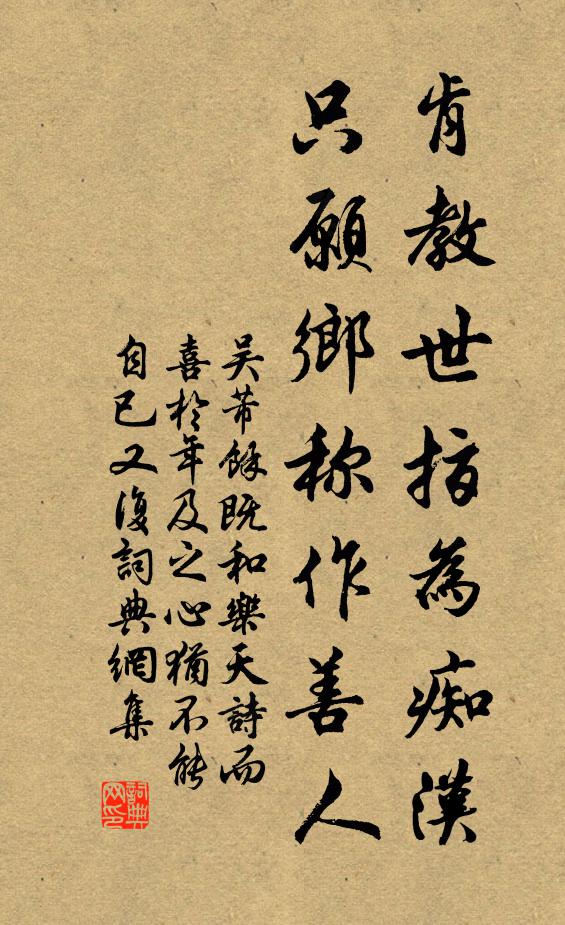 肯教世指為痴漢
只願鄉称作善人
吴芾餘既和樂天詩而
喜於年及之心猶不能
自已又復詞典網集
詞典
网印